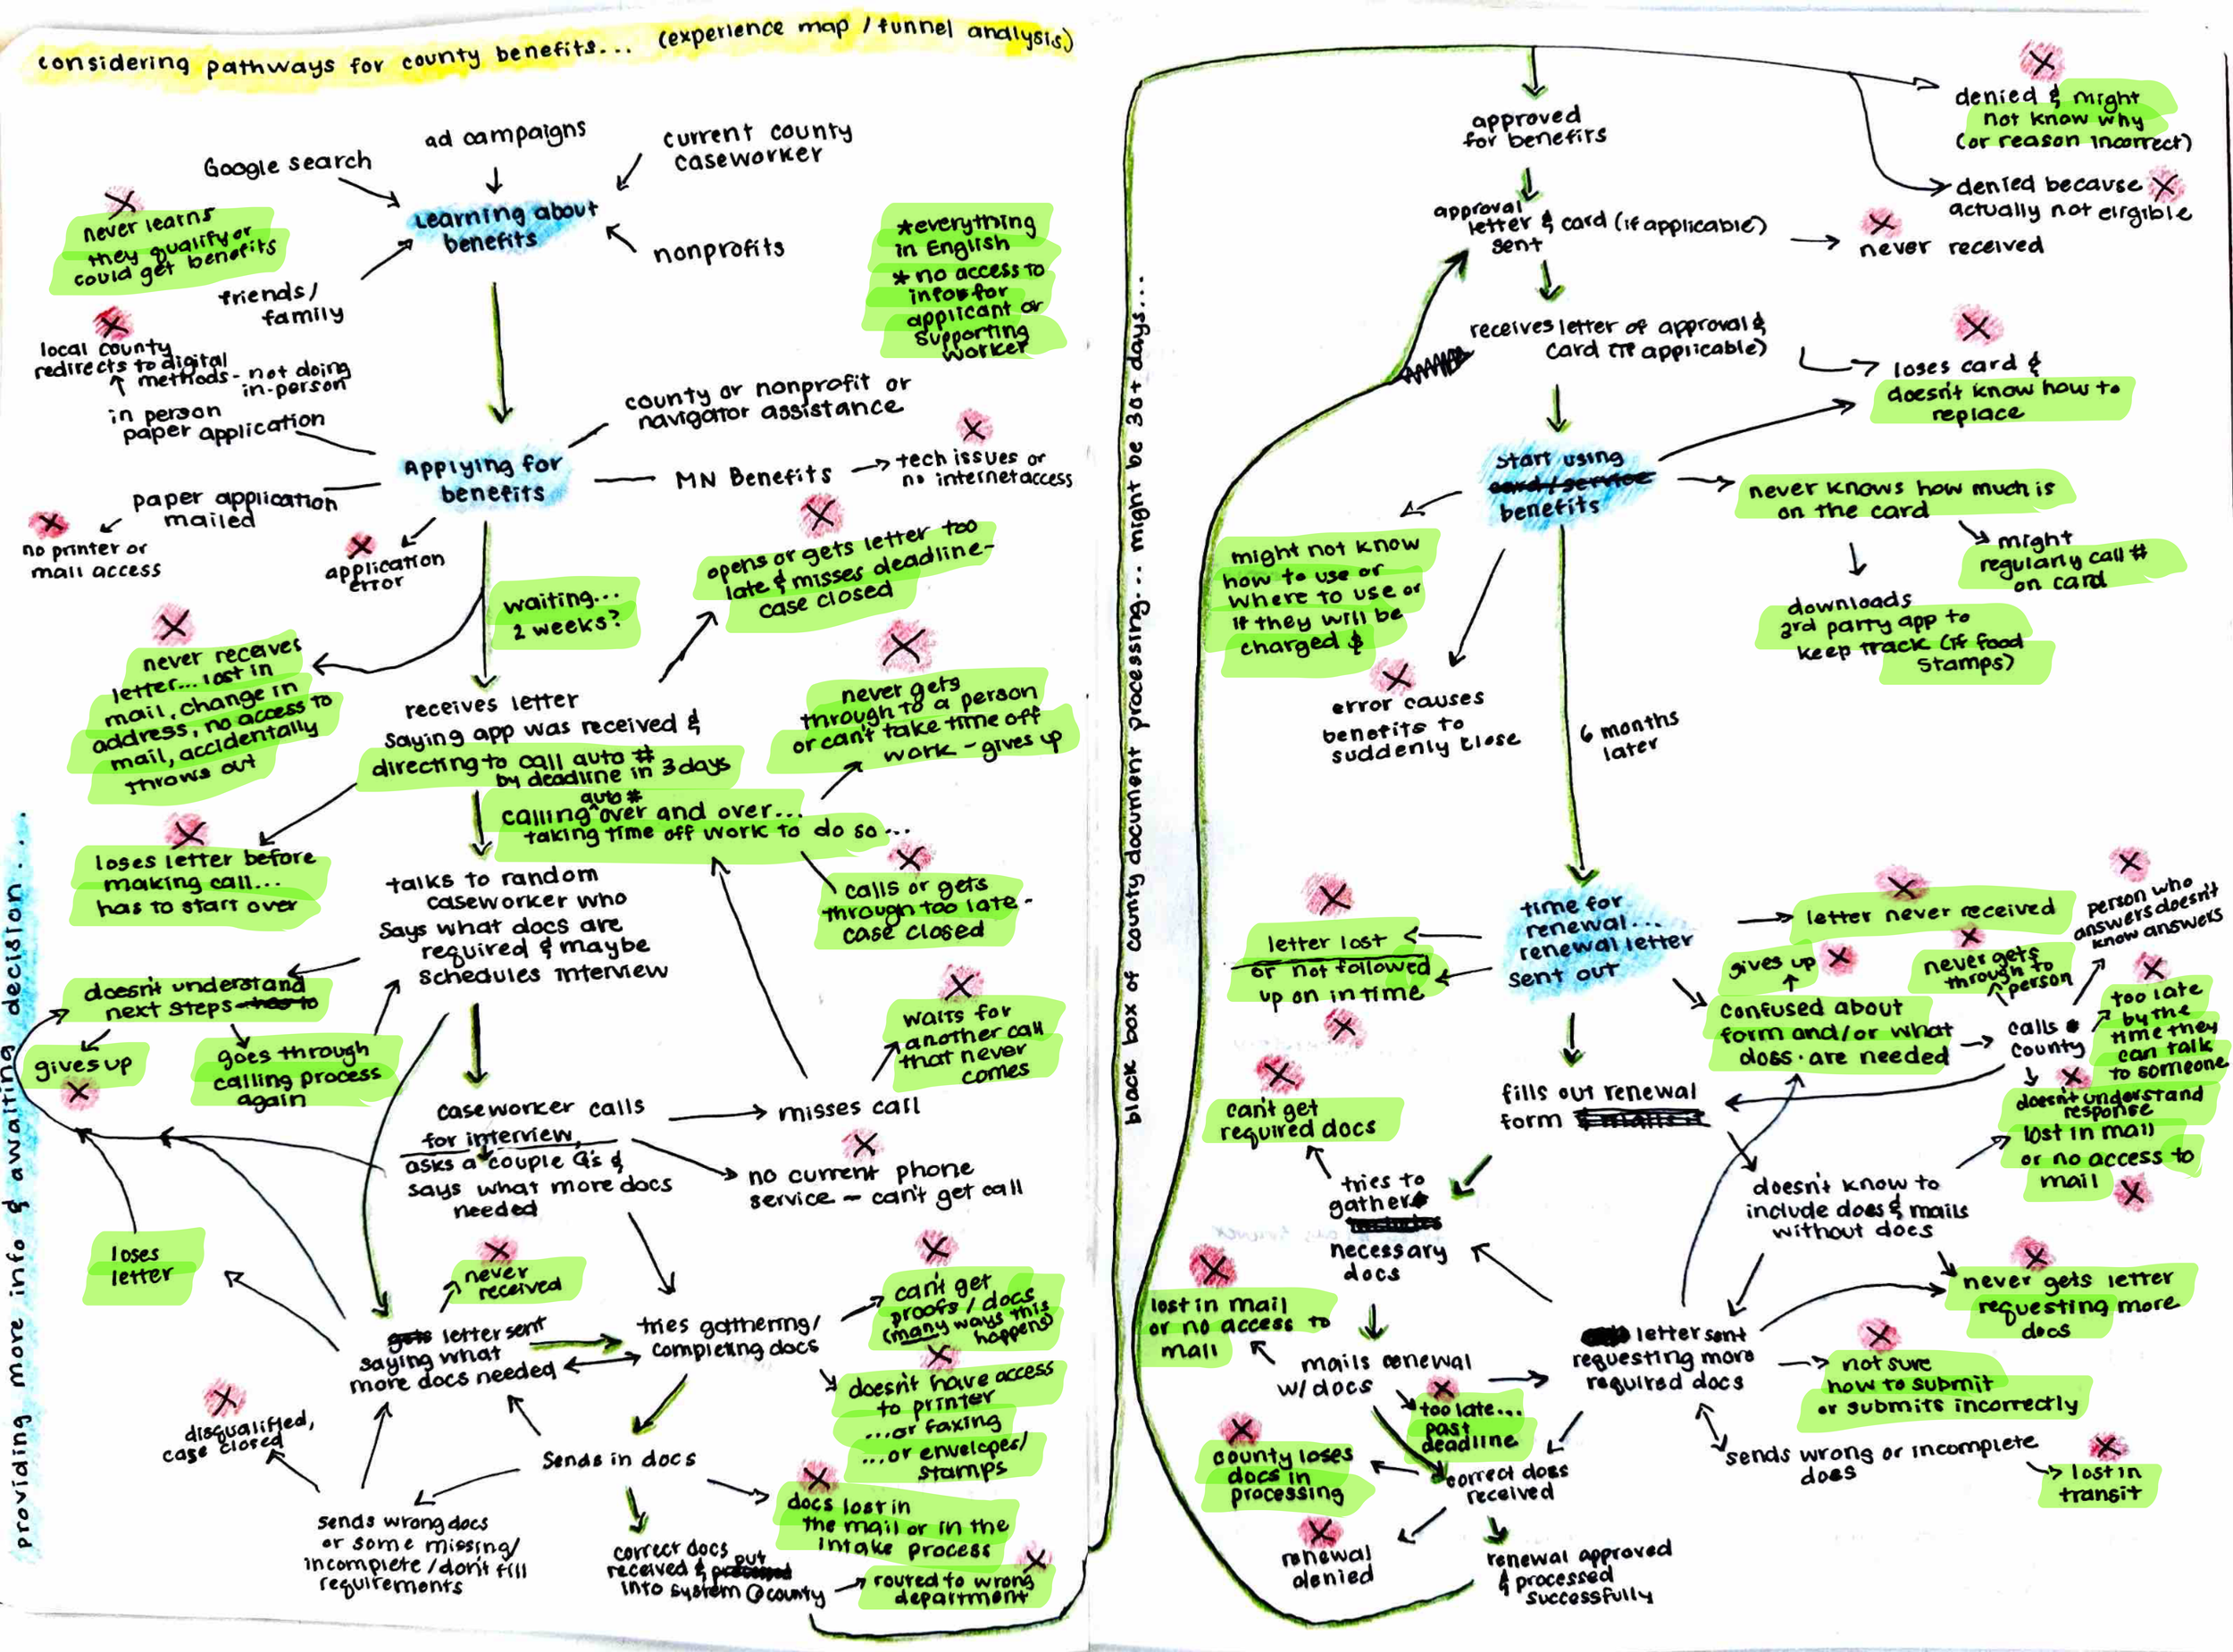 considering pathways for county benefits... (experience map / funnel analysis)
Google search
ad campaigns
current county
caseworker
Learning about
benefits
nonprofits
friends/
family
never learns
they qualify or
could get benefits
*everything
in English
* no access to
info for
applicant or
supporting
worker
local county
redirects to digital
methods - not doing
in-person
in person
paper application
county or nonprofit or
navigator assistance
Applying for
benefits
MN Benefits
tech issues or
no internet access
paper application
mailed
no printer or
mail access
application
error
waiting...
2 weeks?
opens or gets letter too
late & misses deadline-
case closed
never receives
letter... lost in
mail, change in
address, no access to
mail, accidentally
throws out
receives letter
saying app was received &
directing to call auto #
by deadline in 3 days
never gets
through to a person
or can't take time off
work - gives up
auto #
calling ^ over and over...
taking time off work to do so...
loses letter before
making call...
has to start over
talks to random
caseworker who
says what docs are
required & maybe
schedules interview
calls or gets
through too late -
case closed
doesn't understand
next steps
gives up
goes through
calling process
again
waits for
another call
that never
comes
caseworker calls
for interview,
asks a couple Q's &
says what more docs
needed
misses call
no current phone
service - can't get call
loses
letter
never
received
letter sent
saying what
more docs needed
tries gathering/
completing docs
can't get
proofs / docs
(many ways this
happens)
doesn't have access
to printer
...or faxing
...or envelopes/
stamps
disqualified,
case closed
sends in docs
sends wrong docs
or some missing/
incomplete / don't fill
requirements
docs lost in
the mail or in the
intake process
correct docs
received & put
into system @ county
routed to wrong
department
providing more info & awaiting decision...
black box of county document processing... might be 30+ days...
approved
for benefits
denied & might
not know why
(or reason incorrect)
denied because
actually not eligible
approval
letter & card (if applicable)
sent
never received
receives letter of approval &
card (if applicable)
loses card &
doesn't know how to
replace
start using
card / service
benefits
never knows how much is
on the card
might
regularly call #
on card
downloads
3rd party app to
keep track (if food
stamps)
might not know
how to use or
where to use or
if they will be
charged $
error causes
benefits to
suddenly close
6 months
later
time for
renewal...
renewal letter
sent out
letter never received
letter lost
or not followed
up on in time
gives up
confused about
form and/or what
docs are needed
calls
county
never gets
through to
person
person who
answers doesn't
know answers
too late
by the
time they
can talk
to someone
doesn't understand
response
fills out renewal
form & mails it
can't get
required docs
tries to
gather
necessary
docs
doesn't know to
include docs & mails
without docs
lost in mail
or no access to
mail
never gets letter
requesting more
docs
lost in mail
or no access to
mail
mails renewal
w/ docs
letter sent
requesting more
required docs
not sure
how to submit
or submits incorrectly
too late...
past
deadline
county loses
docs in
processing
correct docs
received
sends wrong or incomplete
docs
lost in
transit
renewal
denied
renewal approved
& processed
successfully